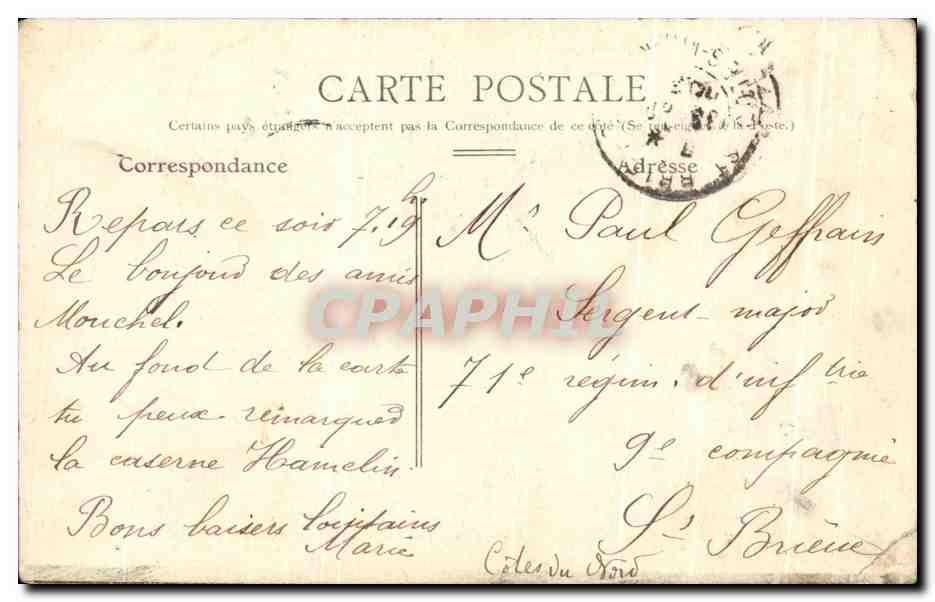 CARTE POSTALE
Certains pays étrangers n'acceptent pas la Correspondance de ce côté (Se renseigner à la Poste.)
Correspondance
Adresse
Repars ce soir 7.19 h.
Le bonjour des amis
Mouchel.
Au fond de la carte
tu peux remarquer
la caserne Hamelin.
Bons baisers lointains
Marie
Mr Paul Geffrain
Sergent-major
71e régim. d'inftrie
9e compagnie
St Brieuc
Côtes du Nord
CPAPHIL